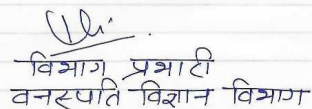 विभाग प्रभारी
वनस्पति विज्ञान विभाग